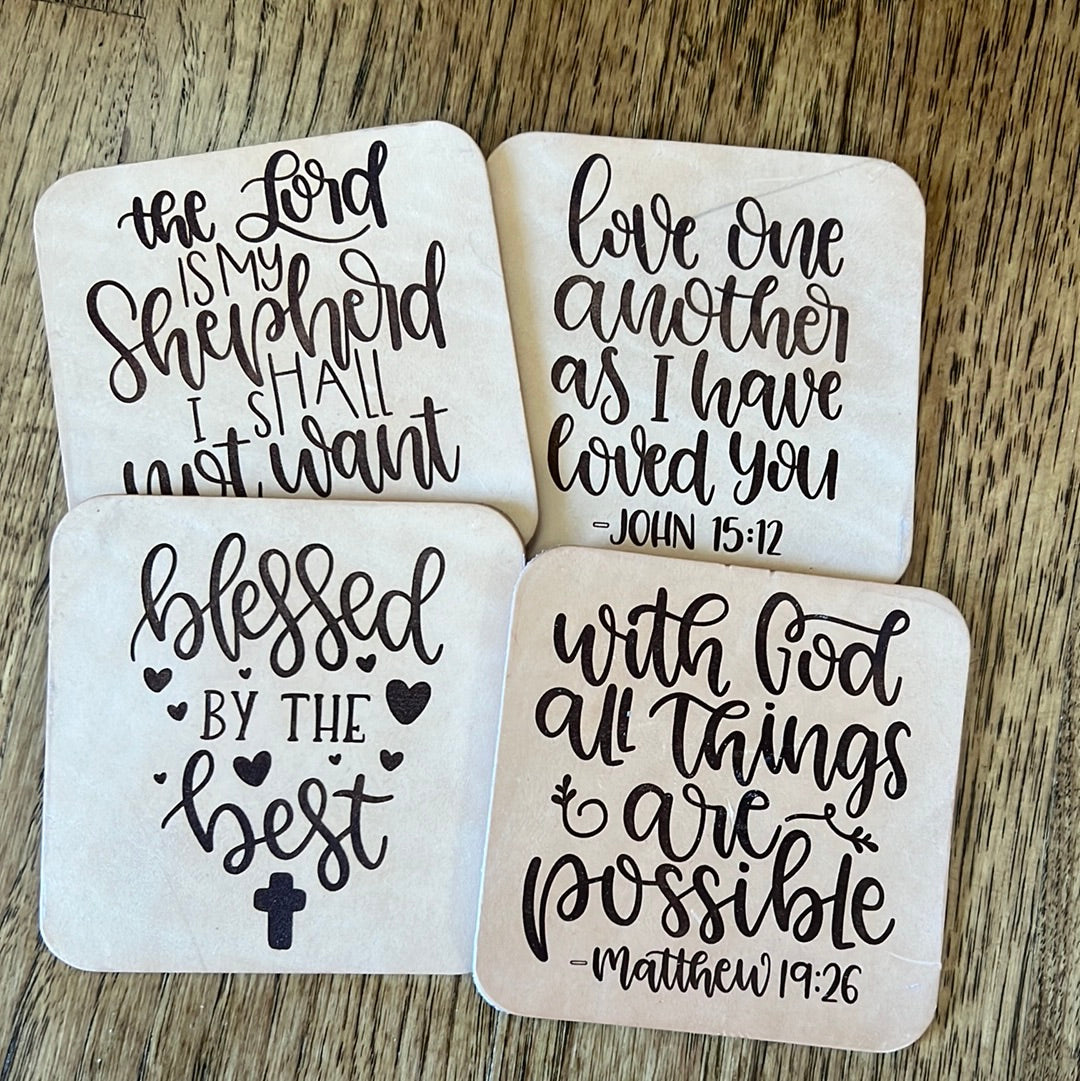 the Lord
IS MY
Shepherd
I SHALL
not want
love one
another
as I have
loved you
-JOHN 15:12
blessed
BY THE
best
with God
all things
are
possible
-Matthew 19:26